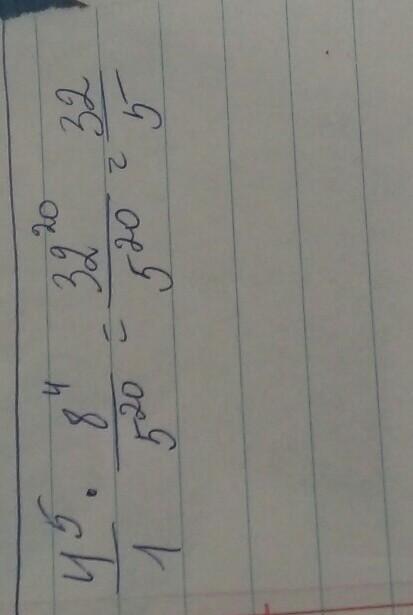 4⁵/1 · 8⁴/5²⁰ = 32²⁰/5²⁰ = 32/5